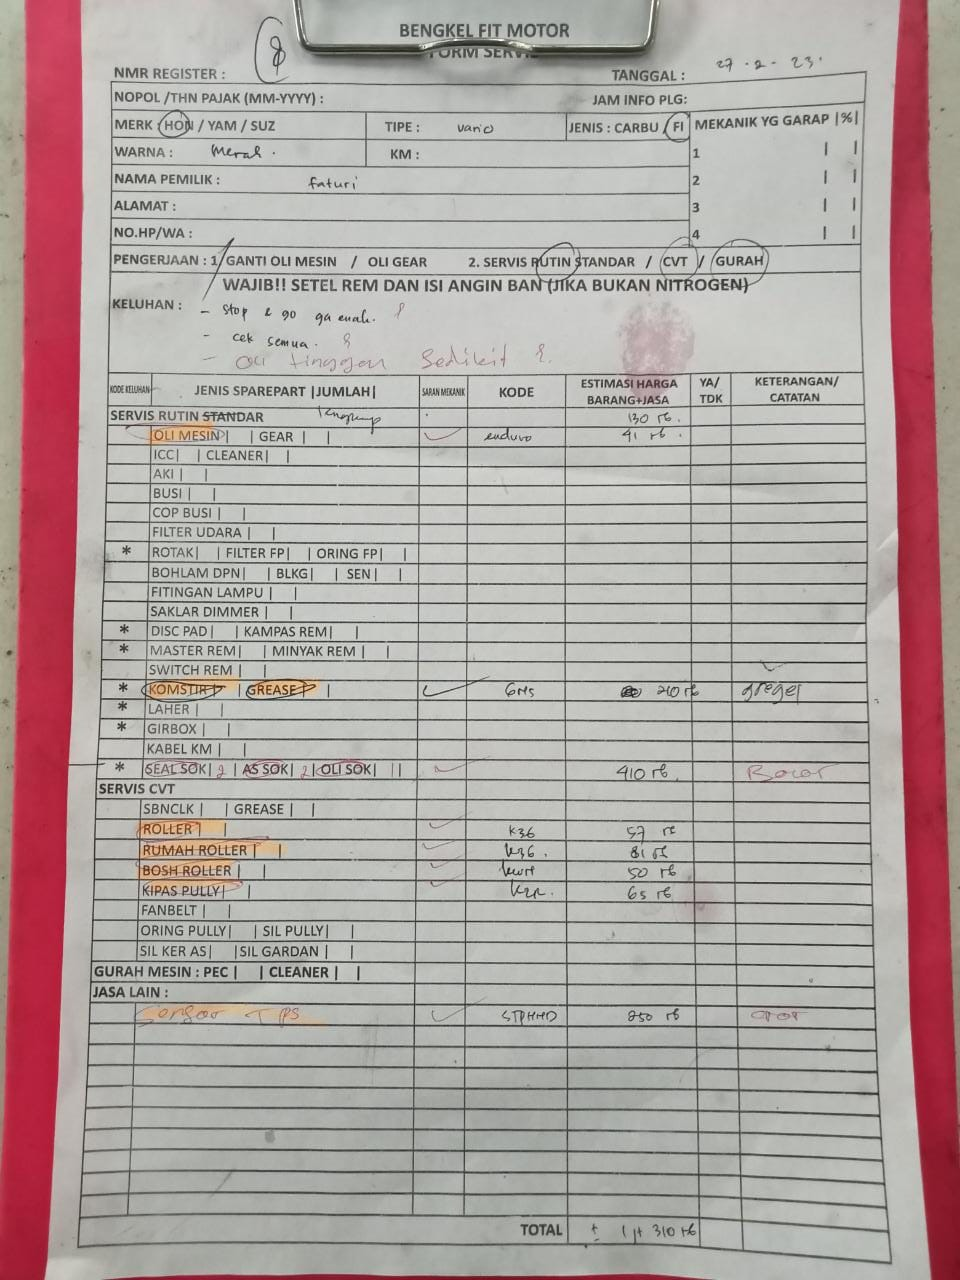 BENGKEL FIT MOTOR
FORM SERVIS
NMR REGISTER : 8
TANGGAL : 27 - 2 - 23.
NOPOL /THN PAJAK (MM-YYYY) : JAM INFO PLG:
MERK : HON / YAM / SUZ TIPE : vario JENIS : CARBU / FI MEKANIK YG GARAP |%|
WARNA : Merah . KM : 1 | |
NAMA PEMILIK : faturi 2 | |
ALAMAT : 3 | |
NO.HP/WA : 4 | |
PENGERJAAN : 1/GANTI OLI MESIN / OLI GEAR 2. SERVIS RUTIN STANDAR / CVT / GURAH
WAJIB!! SETEL REM DAN ISI ANGIN BAN (JIKA BUKAN NITROGEN)
KELUHAN : - Stop & go ga enak.
- cek semua.
- Oli tinggal Sedikit
KODE KELUHAN JENIS SPAREPART |JUMLAH| SARAN MEKANIK KODE ESTIMASI HARGA BARANG+JASA YA/ TDK KETERANGAN/ CATATAN
SERVIS RUTIN STANDAR lengkap 130 rb.
OLI MESIN| | GEAR | | enduro 41 rb.
ICC| | CLEANER| |
AKI | |
BUSI | |
COP BUSI | |
FILTER UDARA | |
* ROTAK| | FILTER FP| | ORING FP| |
BOHLAM DPN| | BLKG| | SEN| |
FITINGAN LAMPU | |
SAKLAR DIMMER | |
* DISC PAD| | KAMPAS REM| |
* MASTER REM| | MINYAK REM | |
SWITCH REM | |
* KOMSTIR| | GREASE| | GMS 210 rb gregel
* LAHER | |
* GIRBOX | |
KABEL KM | |
* SEAL SOK| 2 | AS SOK| 2 | OLI SOK| || 410 rb. Bocor
SERVIS CVT
SBNCLK | | GREASE | |
ROLLER | | k36 57 rb
RUMAH ROLLER | | k36. 81 rb
BOSH ROLLER | | kwn 50 rb
KIPAS PULLY| | kzr 65 rb
FANBELT | |
ORING PULLY| | SIL PULLY| |
SIL KER AS| |SIL GARDAN | |
GURAH MESIN : PEC | | CLEANER | |
JASA LAIN :
Sensor TPS STPHHD 250 rb
TOTAL ± 1 jt 310 rb